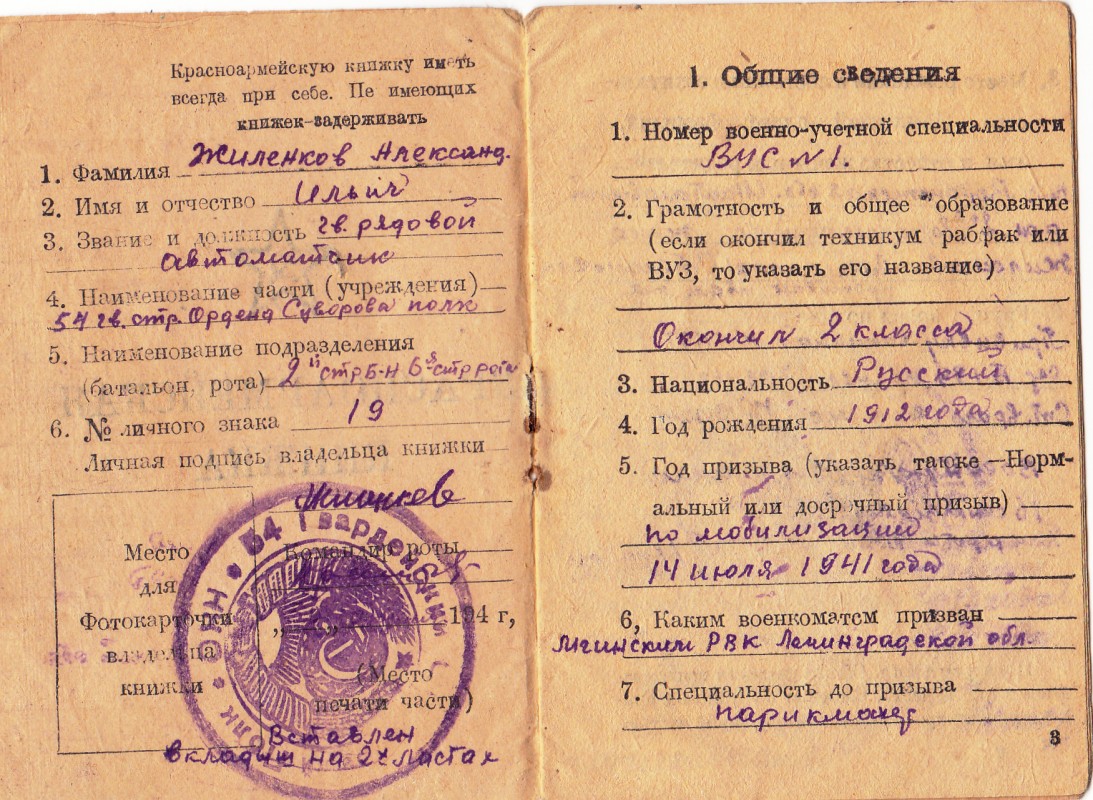 Красноармейскую книжку иметь
всегда при себе. Не имеющих
книжек-задерживать
1. Фамилия Жиленков Александ.
2. Имя и отчество Ильич
3. Звание и должность гв. рядовой
автоматчик
4. Наименование части (учреждения)
54 гв. стр. Ордена Суворова полк
5. Наименование подразделения
(батальон, рота) 2й стр Б-Н 6я стр рота
6. № личного знака 19
Личная подпись владельца книжки
Место
для
Фотокарточки
владельца
книжки
Командир роты
„ “ 194 г,
(Место
печати части)
54 Гвардейский
полк
Вставлен
вкладыш на 2х листах
1. Общие сведения
1. Номер военно-учетной специальности
ВУС №1.
2. Грамотность и общее образование
(если окончил техникум рабфак или
ВУЗ, то указать его название)
Окончил 2 класса
3. Национальность Русский
4. Год рождения 1912 года
5. Год призыва (указать также—Норм-
альный или досрочный призыв)
по мобилизации
14 июля 1941 года
6, Каким военкоматем призван
Мгинским РВК Ленинградской обл.
7. Специальность до призыва
парикмахер
3